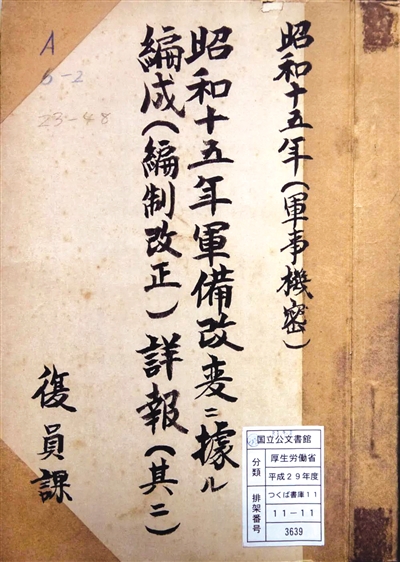 昭和十五年(軍事機密)
昭和十五年軍備改変ニ據ル
編成(編制改正)詳報(其二)
復員課
A
6-2
23-48
国立公文書館
分類
厚生労働省
平成29年度
つくば書庫11
排架番号
11-11
3639